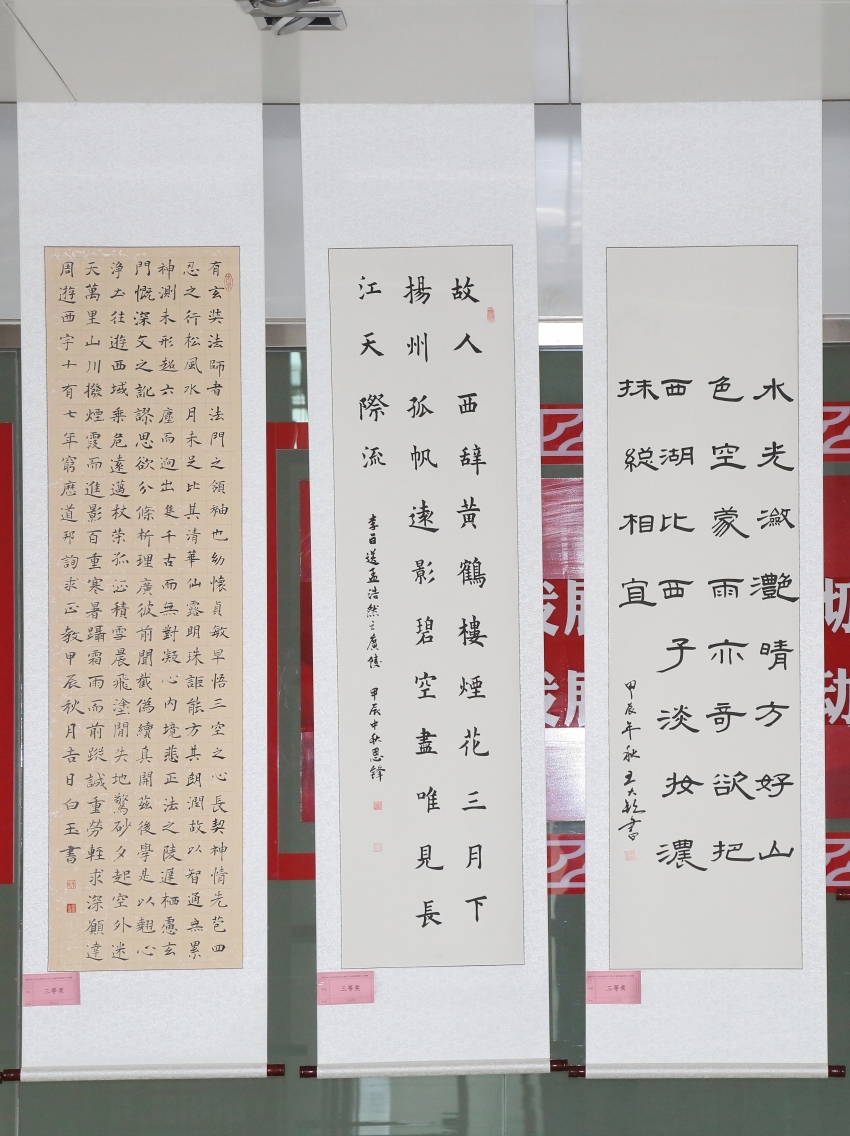 有玄奘法師者法門之領袖也幼懷貞敏早悟三空之心長契神情先苞四
忍之行松風水月未足比其清華仙露明珠詎能方其朗潤故以智通无累
神測未形超六塵而迥出隻千古而無對凝心內境悲正法之陵遲栖慮玄
門慨深文之訛謬思欲分條析理廣彼前聞截偽續真開茲後學是以翹心
淨土往遊西域乘危遠邁杖策孤征積雪晨飛塗閒失地驚砂夕起空外迷
天萬里山川撥煙霞而進影百重寒暑躡霜雨而前蹤誠重勞輕求深願達
周遊西宇十有七年窮歷道邦詢求正教甲辰秋月吉日白玉書
三等奖
故人西辞黃鶴樓煙花三月下
揚州孤帆遠影碧空盡唯見長
江天際流
李白送孟浩然之廣陵 甲辰中秋思鋒
三等奖
水光瀲灩晴方好山
色空蒙雨亦奇欲把
西湖比西子淡妝濃
抹總相宜
甲辰年秋王大書
三等奖